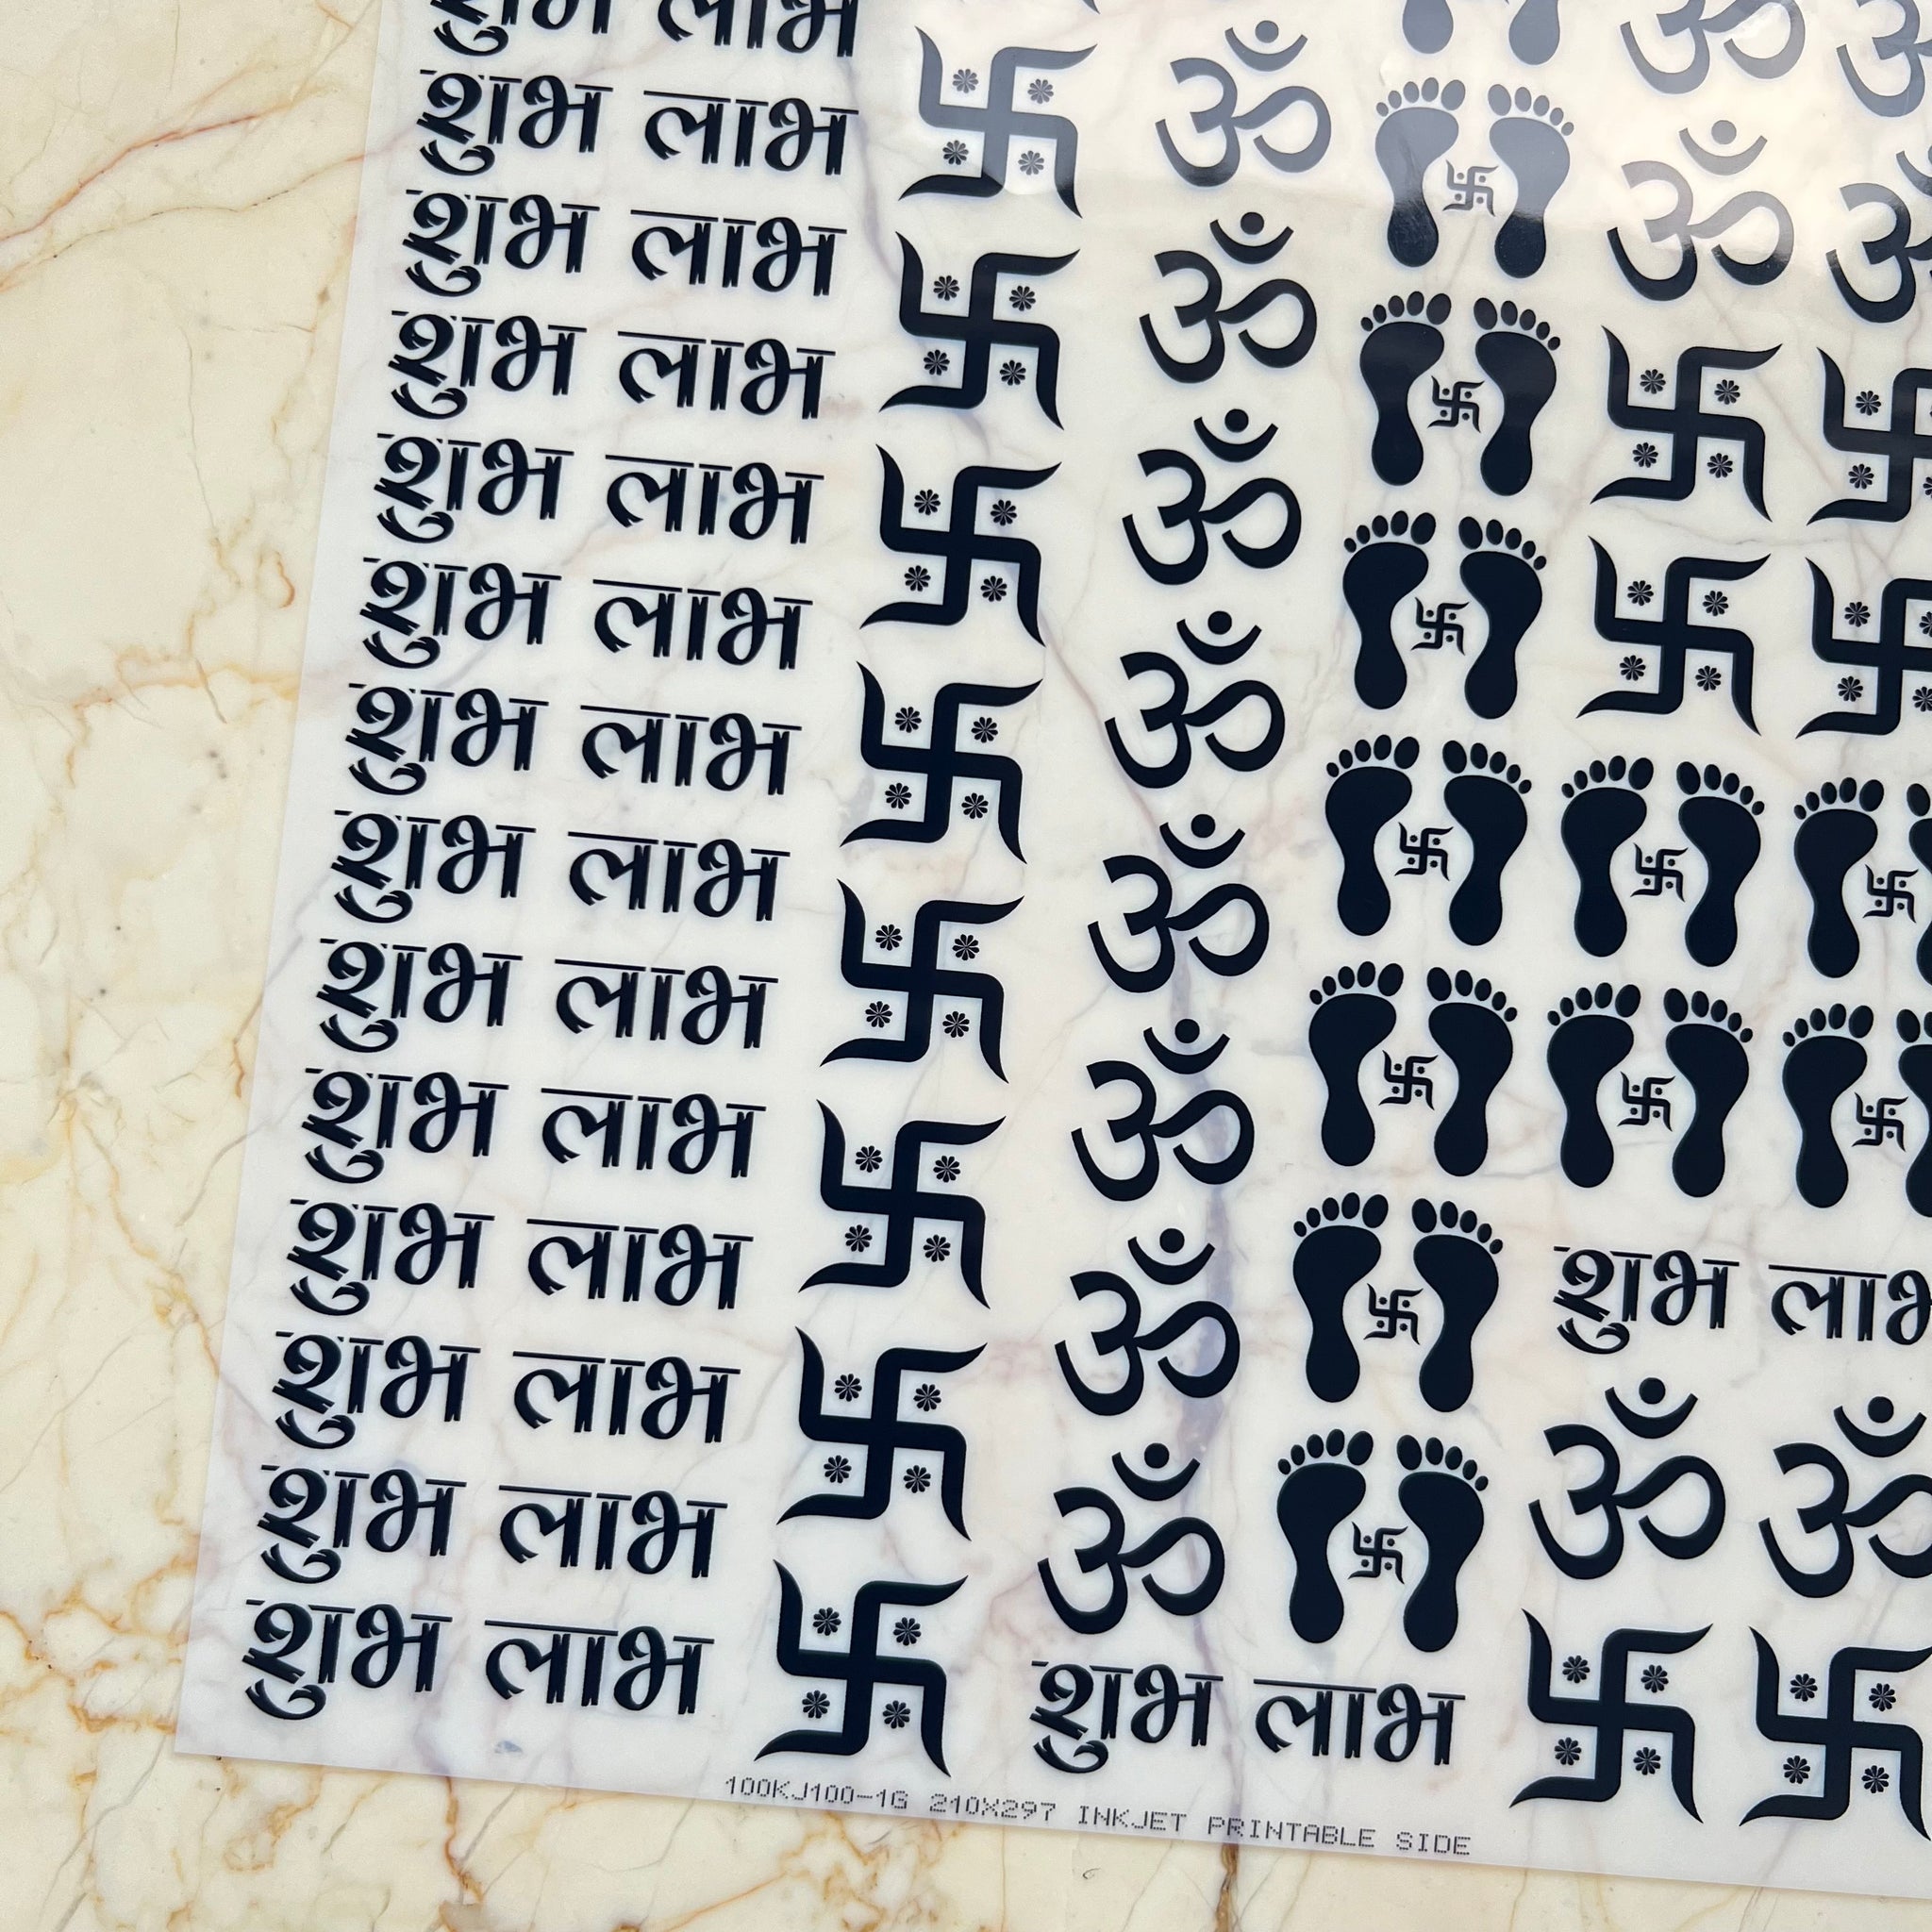 शुभ लाभ
शुभ लाभ
शुभ लाभ
शुभ लाभ
शुभ लाभ
शुभ लाभ
शुभ लाभ
शुभ लाभ
शुभ लाभ
शुभ लाभ
शुभ लाभ
शुभ लाभ
शुभ लाभ
शुभ लाभ
ॐ
ॐ
ॐ
ॐ
ॐ
ॐ
ॐ
ॐ
शुभ लाभ
ॐ ॐ
ॐ ॐ
शुभ लाभ
ॐ ॐ
100KJ100-1G 210X297 INKJET PRINTABLE SIDE